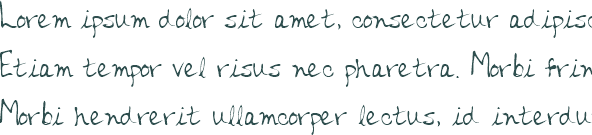 Lorem ipsum dolor sit amet, consectetur adipisc
Etiam tempor vel risus nec pharetra. Morbi frin
Morbi hendrerit ullamcorper lectus, id interdu